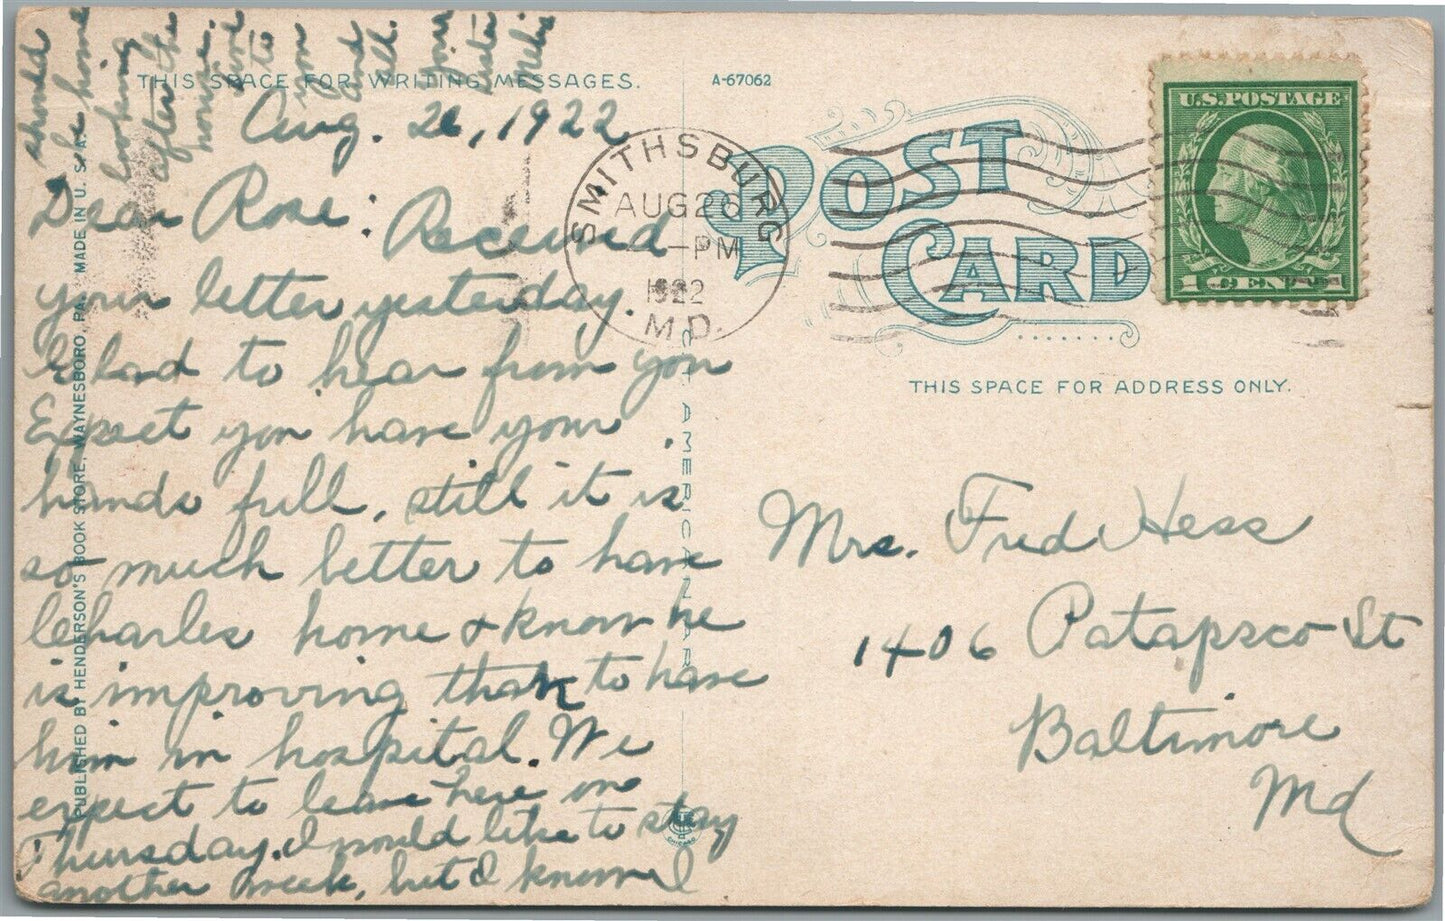 THIS SPACE FOR WRITING MESSAGES.
Aug. 26, 1922
Dear Rose: Received
your letter yesterday.
Glad to hear from you
Expect you have your
hands full, still it is
so much better to have
Charles home & know he
is improving than to have
him in hospital. We
expect to leave here on
Thursday. I would like to stay
another week, but I know I
should
be home
looking
after the
house.
Love
to
you
and
all.
Your
sister
PUBLISHED BY HENDERSON'S BOOK STORE, WAYNESBORO, PA. MADE IN U. S. A.
C. T. AMERICAN ART
CHICAGO
A-67062
POST
CARD
SMITHSBURG
AUG 26
-PM
1922
MD.
U.S. POSTAGE
1 CENT 1
THIS SPACE FOR ADDRESS ONLY.
Mrs. Fred Hess
1406 Patapsco St
Baltimore
Md